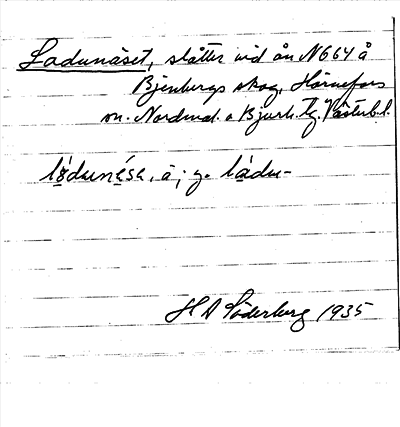 Ladunäset, slåtter vid ån N664 å
Bjenbergs skog, Hörnefors
sn. Nordmal. o Bjurh. tg. Västerb. l.
lådunésе, ä; g. ládu-
H A Söderberg 1935